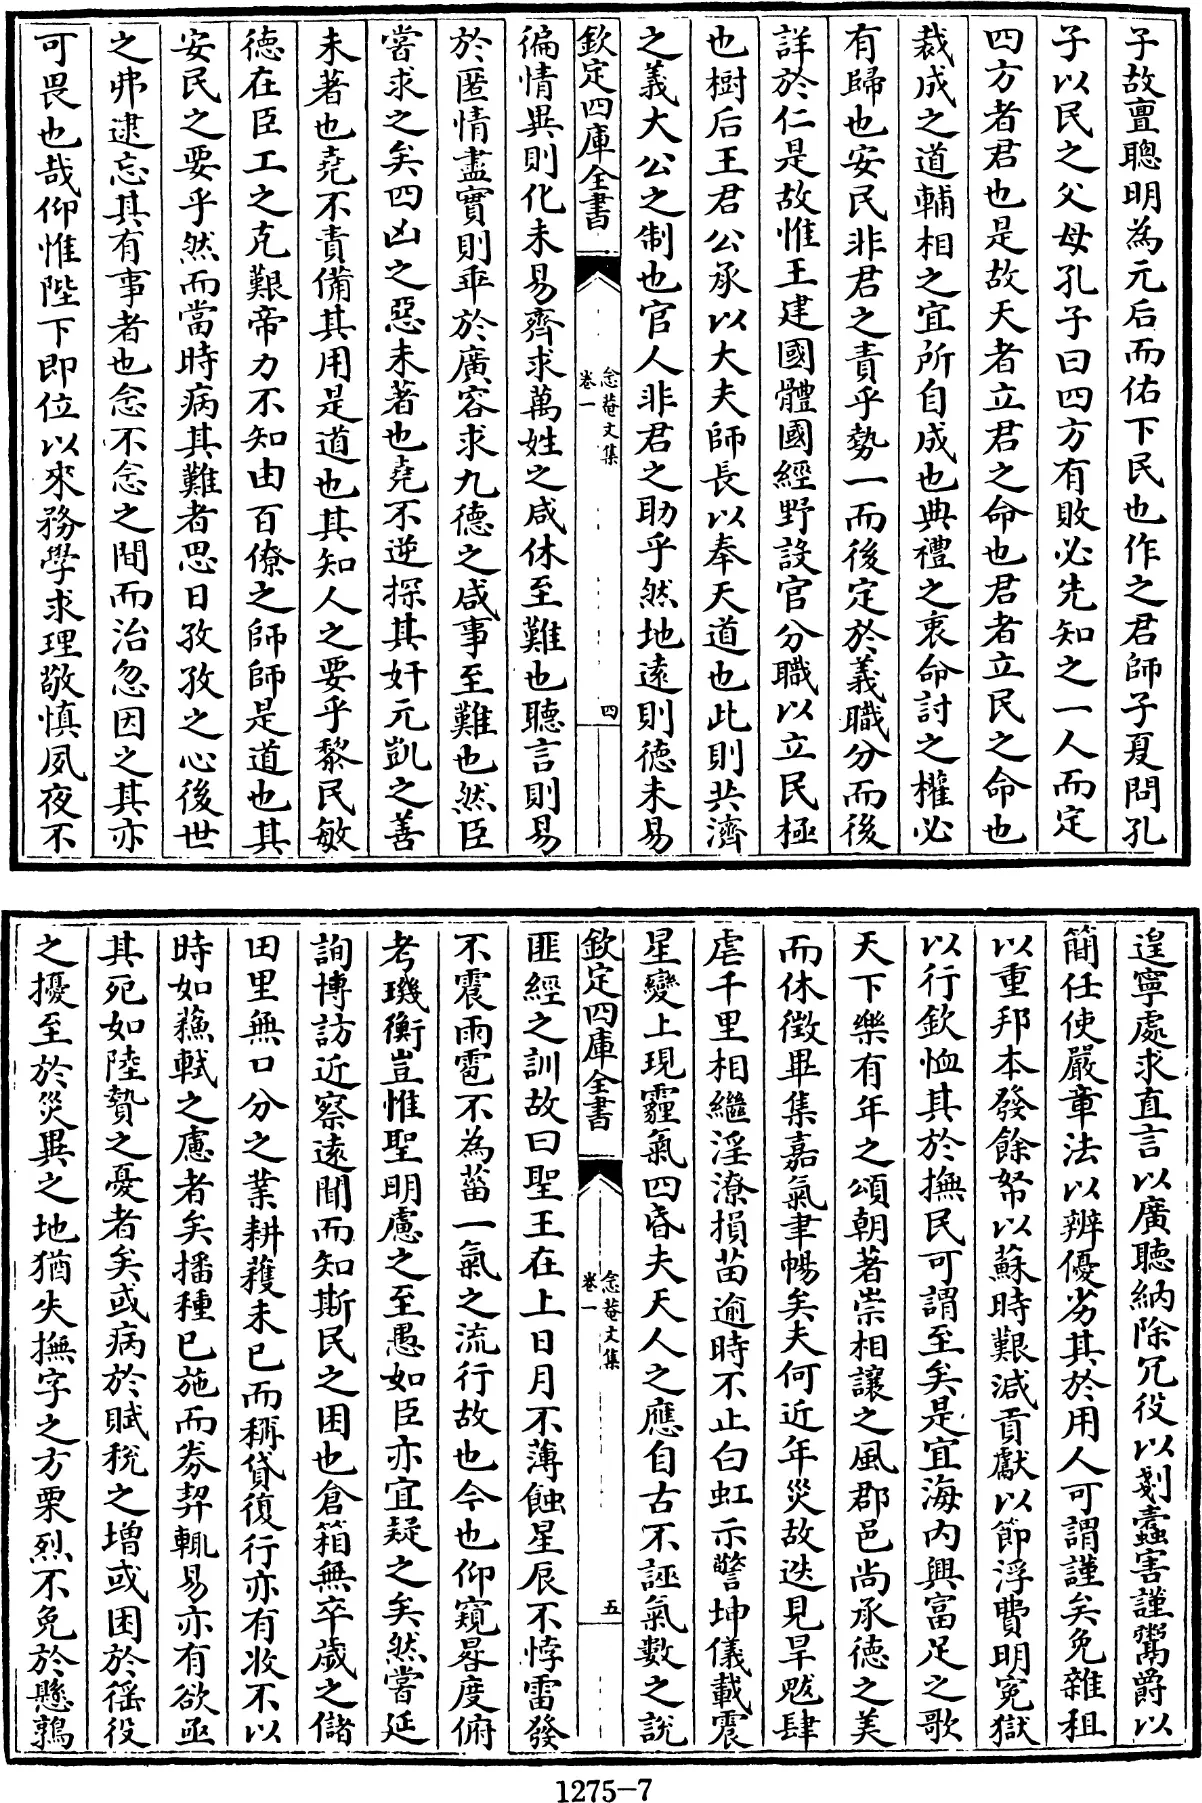 子故亶聰明為元后而佑下民也作之君師子夏問孔
子以民之父母孔子曰四方有敗必先知之一人而定
四方者君也是故天者立君之命也君者立民之命也
裁成之道輔相之宜所自成也典禮之衷命討之權必
有歸也安民非君之責乎勢一而後定於義職分而後
詳於仁是故惟王建國體國經野設官分職以立民極
也樹后王君公承以大夫師長以奉天道也此則共濟
之義大公之制也官人非君之助乎然地遠則德未易
欽定四庫全書
念菴文集
卷一
四
徧情異則化未易齊求萬姓之咸休至難也聽言則易
於匿情盡實則乖於廣容求九德之咸事至難也然臣
嘗求之矣四凶之惡未著也堯不逆探其奸元凱之善
未著也堯不責備其用是道也其知人之要乎黎民敏
德在臣工之克艱帝力不知由百僚之師師是道也其
安民之要乎然而當時病其難者思日孜孜之心後世
之弗逮忘其有事者也念不念之間而治忽因之其亦
可畏也哉仰惟陛下即位以來務學求理敬慎夙夜不
遑寧處求直言以廣聽納除冗役以剗蠹害謹鬻爵以
簡任使嚴章法以辨優劣其於用人可謂謹矣免雜租
以重邦本發餘帑以蘇時艱減貢獻以節浮費明冤獄
以行欽恤其於撫民可謂至矣是宜海内興富足之歌
天下樂有年之頌朝著崇相讓之風郡邑尚承德之美
而休徵畢集嘉氣聿暢矣夫何近年災故迭見旱魃肆
虐千里相繼淫潦損苗逾時不止白虹示警坤儀載震
星變上現霾氣四昏夫天人之應自古不誣氣數之說
欽定四庫全書
念菴文集
卷一
五
匪經之訓故曰聖王在上日月不薄蝕星辰不悖雷發
不震雨雹不為菑一氣之流行故也今也仰窺晷度俯
考璣衡豈惟聖明慮之至愚如臣亦宜疑之矣然嘗延
詢博訪近察遠聞而知斯民之困也倉箱無卒歲之儲
田里無口分之業耕穫未已而稱貸復行亦有收不以
時如蘓軾之慮者矣播種已施而券契輒易亦有欲亟
其死如陸贄之憂者矣或病於賦稅之增或困於徭役
之擾至於災異之地猶失撫字之方栗烈不免於懸鶉
1275-7